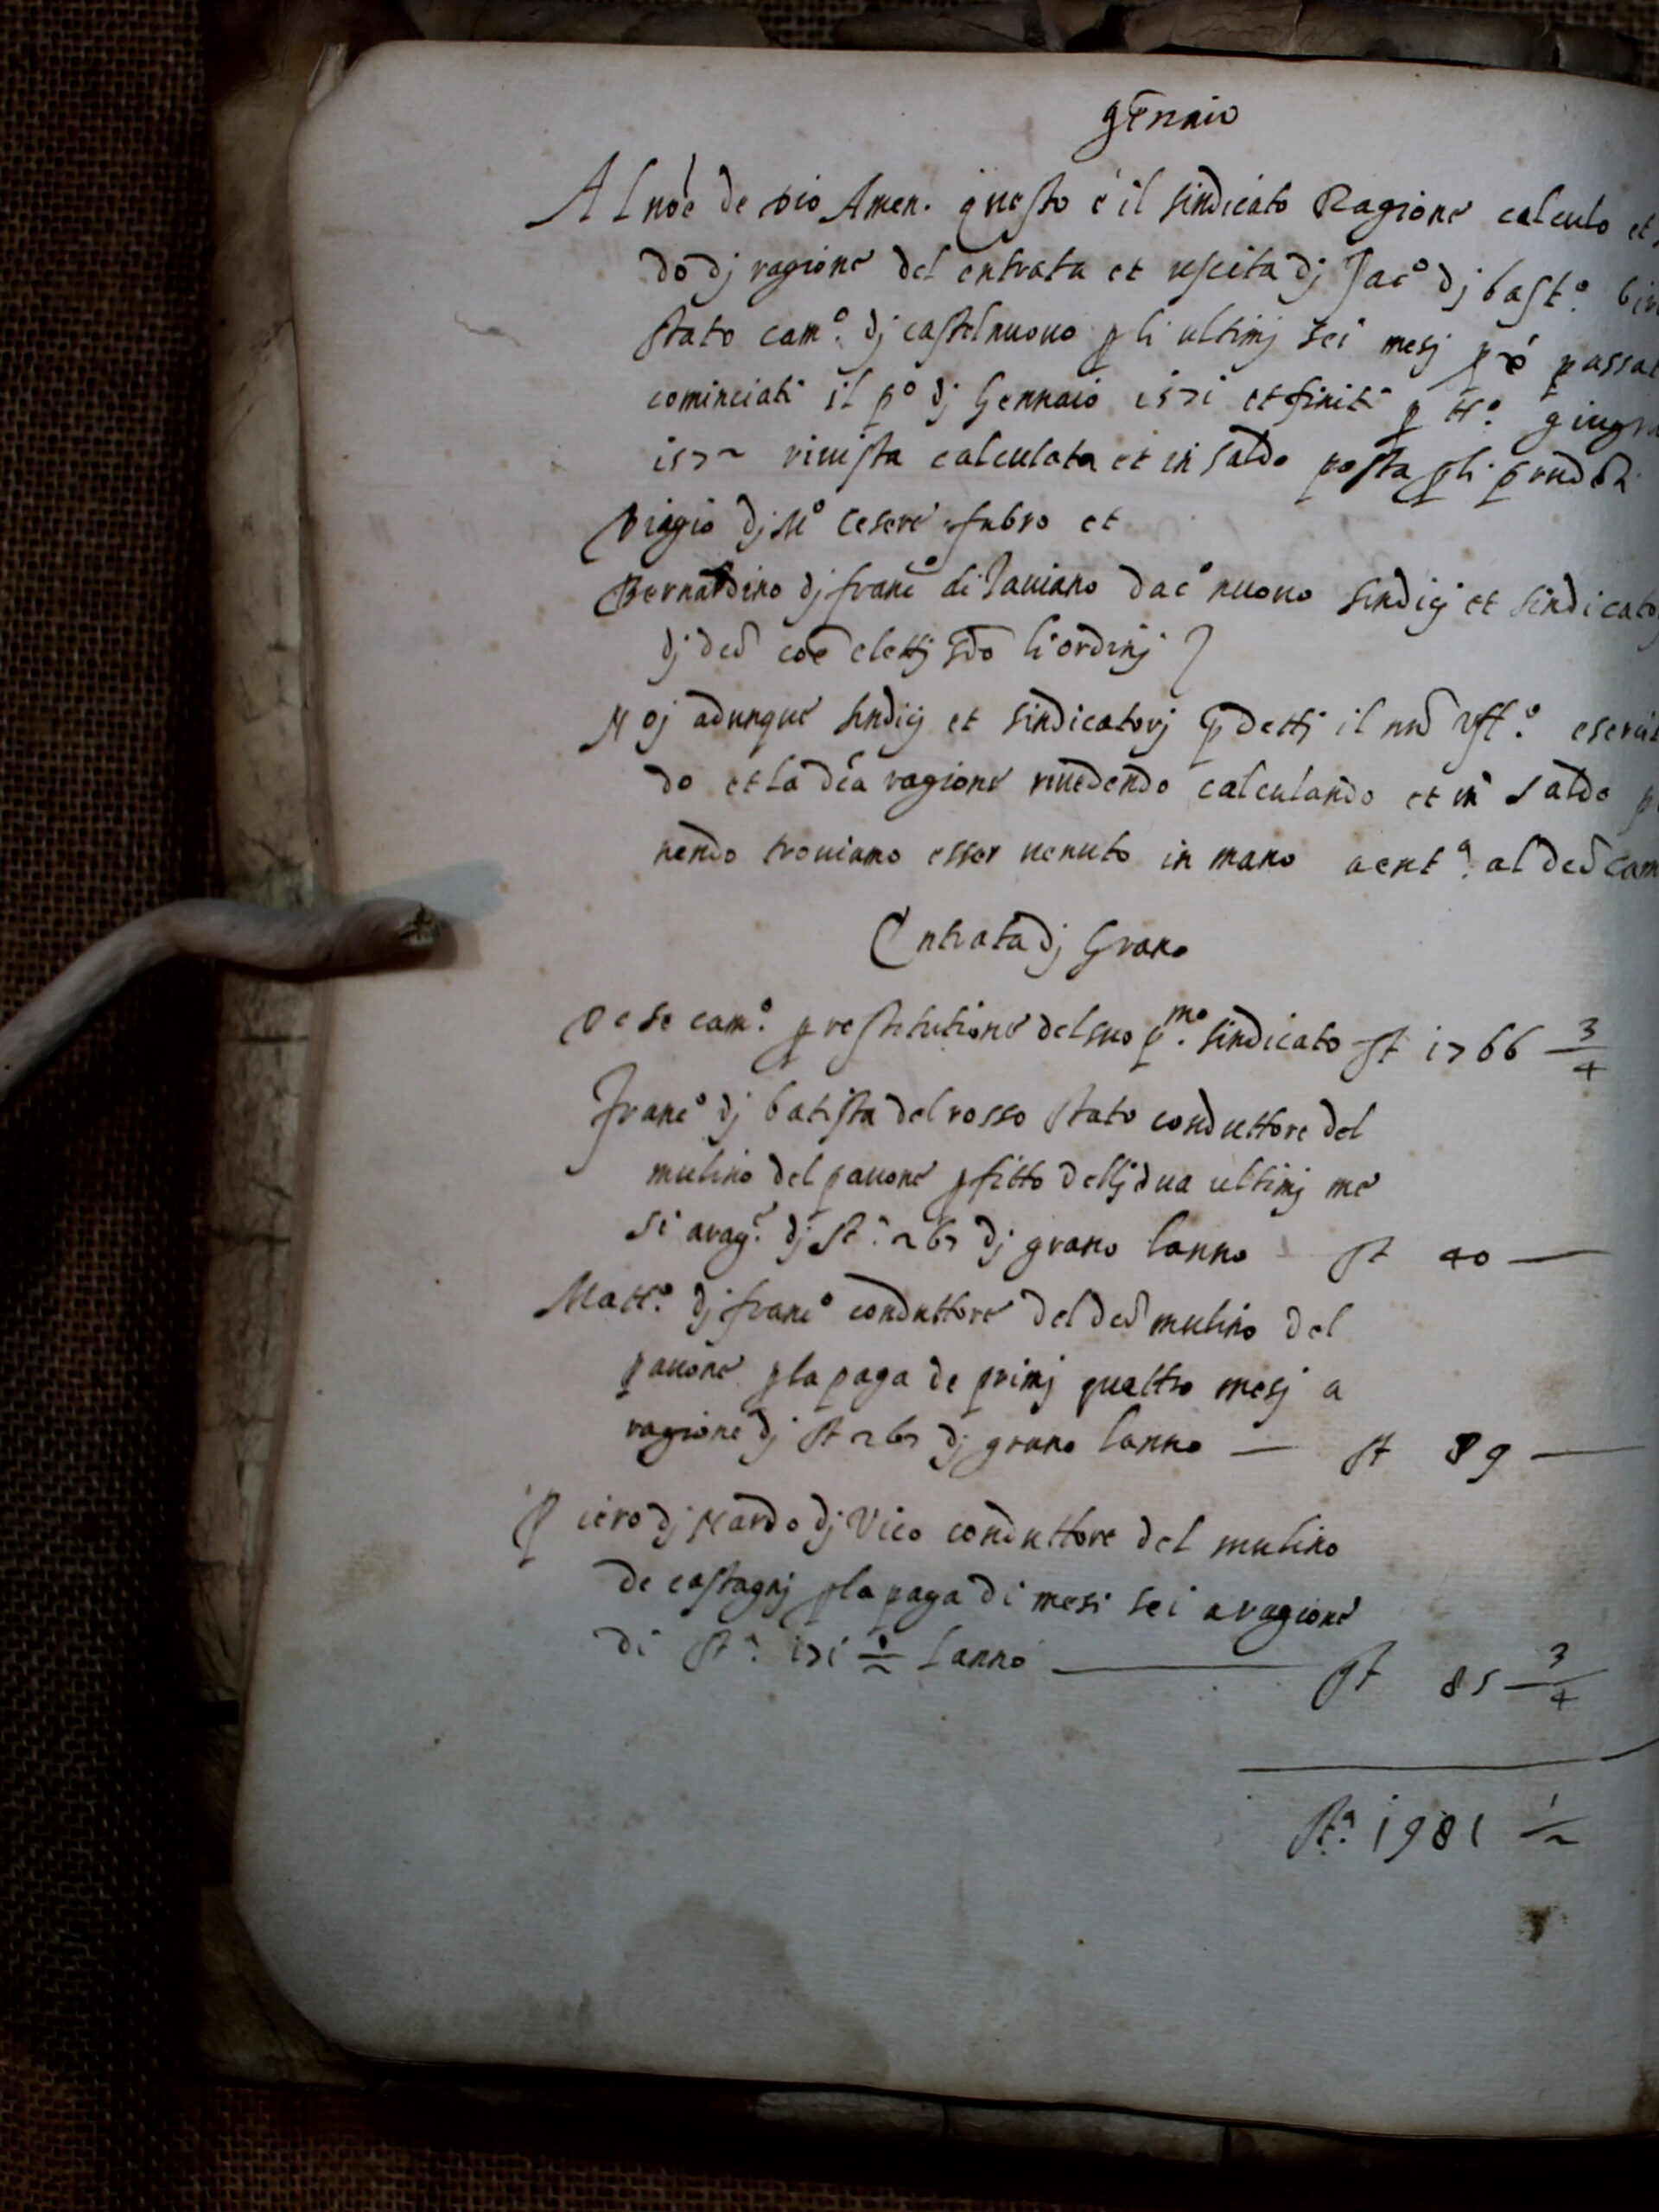 gennaio
Al noē de Dio Amen. questo è il sindicato Ragione calculo et
do dj ragione del entrata et uscita dj Jacº dj bastº.
stato camº. dj castelnuouo p li ultimj sei mesj pº passat
cominciati il pº dj Gennaio 1571 et finiti p ttº. giugn
157~ riuista calculata et in saldo posta p li prudēti
Biagio dj Mº Cesere fabro et
Bernardino dj francº di Tauiano da cº nuouo sindicj et sindicato
dj dcō coē elettj sdō li ordinj
Noj adunque sindicj et sindicatorj p detti il nrō uffº. esercit
do et la dcā ragione riuedendo calculando et in saldo p
nendo trouiamo esser uenuto in mano a entª. al dcō cam
Entrata dj Grano
Da se camº. p restitutione del suo pmº. sindicato st 1766 3/4
Francº dj batista del rosso stato conduttore del
mulino del pauone p fitto dellj dua ultimj me
si a ragē. dj stª. 267 dj grano lanno st 40 —
Mattº. dj francº conduttore del dcō mulino del
pauone p la paga de primj quattro mesj a
ragione dj st 267 dj grano lanno — st 89 —
Piero dj Nardo dj Vico conduttore del mulino
de castagnj p la paga di mesi sei a ragione
di stª. 171 1/2 lanno — st 85 3/4
stª. 1981 1/2